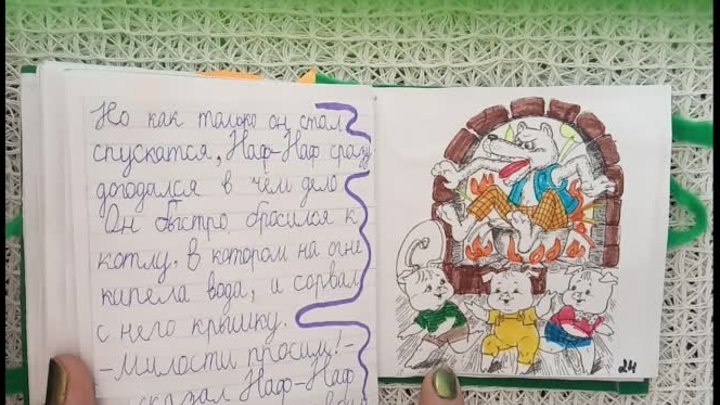 Но как только он стал
спускатся, Наф-Наф сразу
догодался в чем дело
Он быстро бросился к
котлу. в котором на огне
кипела вода, и сорвал
с него крышку.
-Милости просим!-
сказал Наф-Наф
24